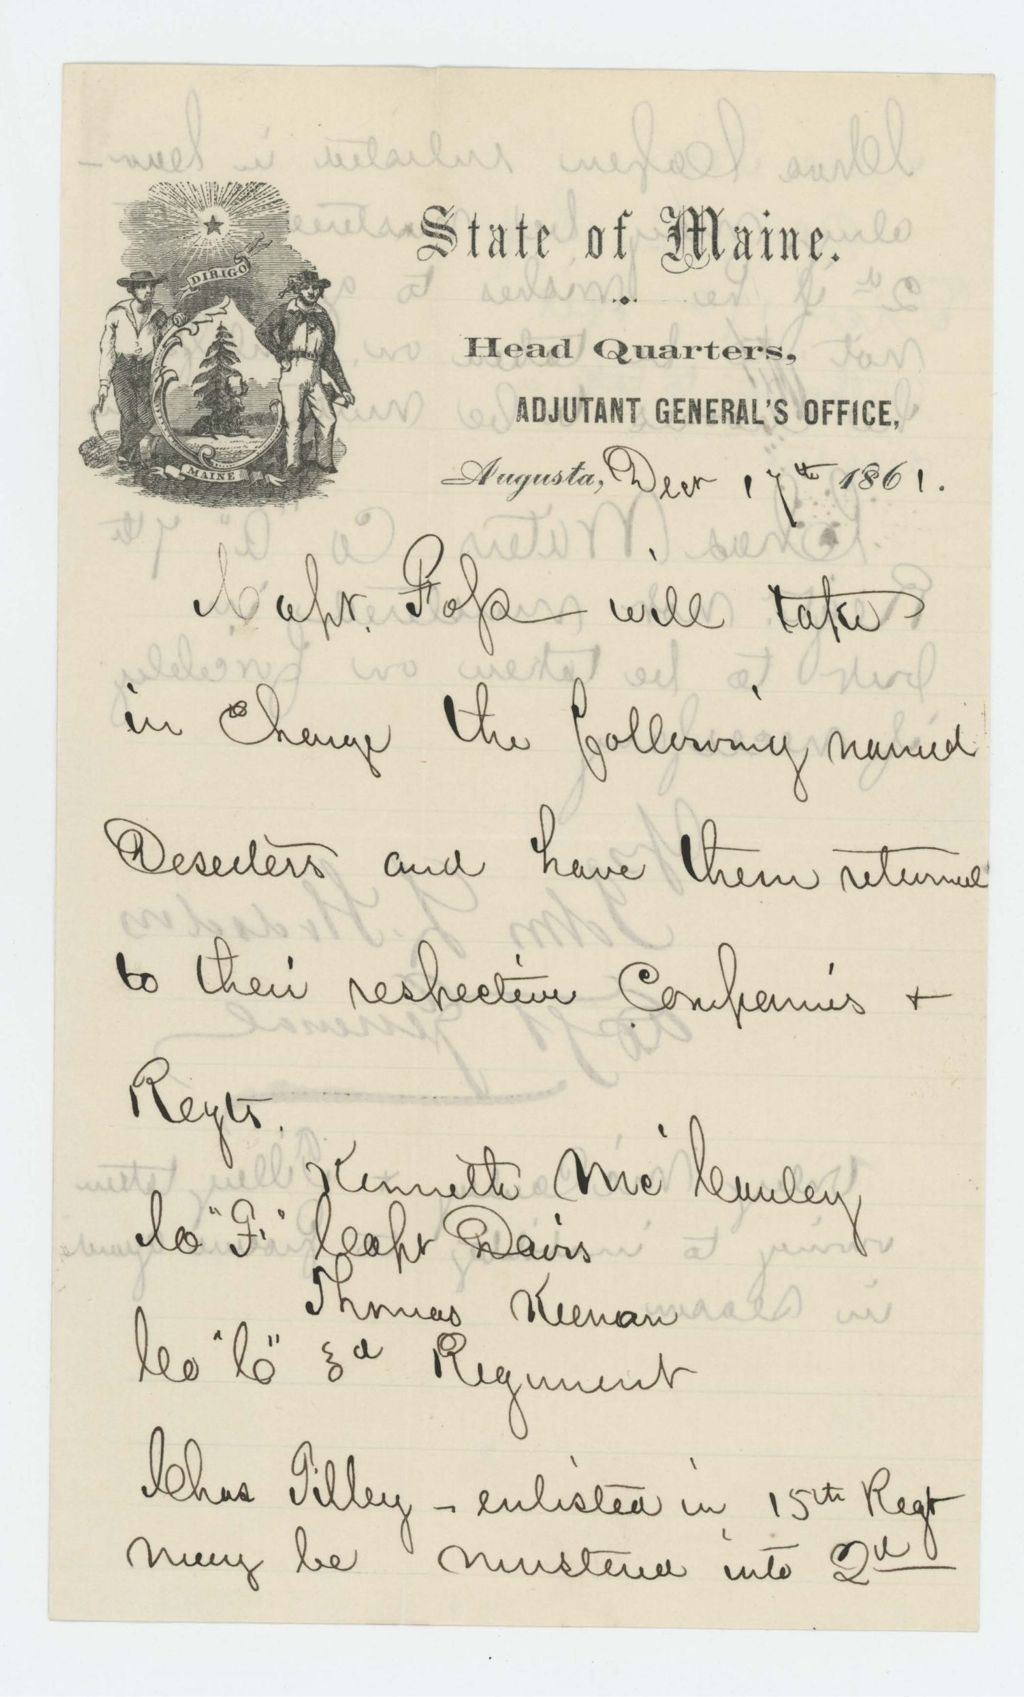 State of Maine.
Head Quarters,
ADJUTANT GENERAL'S OFFICE,
Augusta, Decr 17th 1861.
DIRIGO
MAINE
Capt. Foss will take
in Charge the following named
Deserters and have them returned
to their respective Companies +
Regts.
Kenneth Mc
Co "F" Capt Davis
Thomas Keenan
Co "C" 3d Regiment
Chas Tilley – enlisted in 15th Regt
may be mustered into 2d